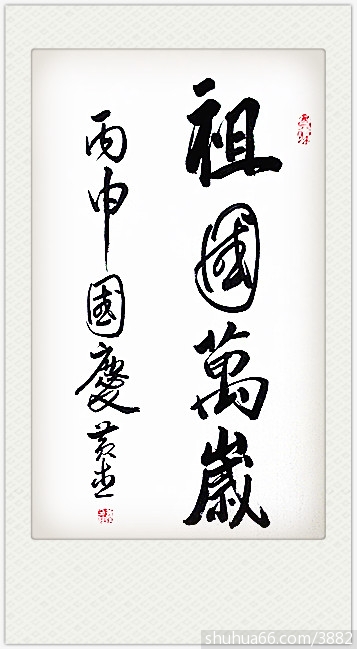 祖國萬歲
丙申國慶黃
shuhua66.com/3882